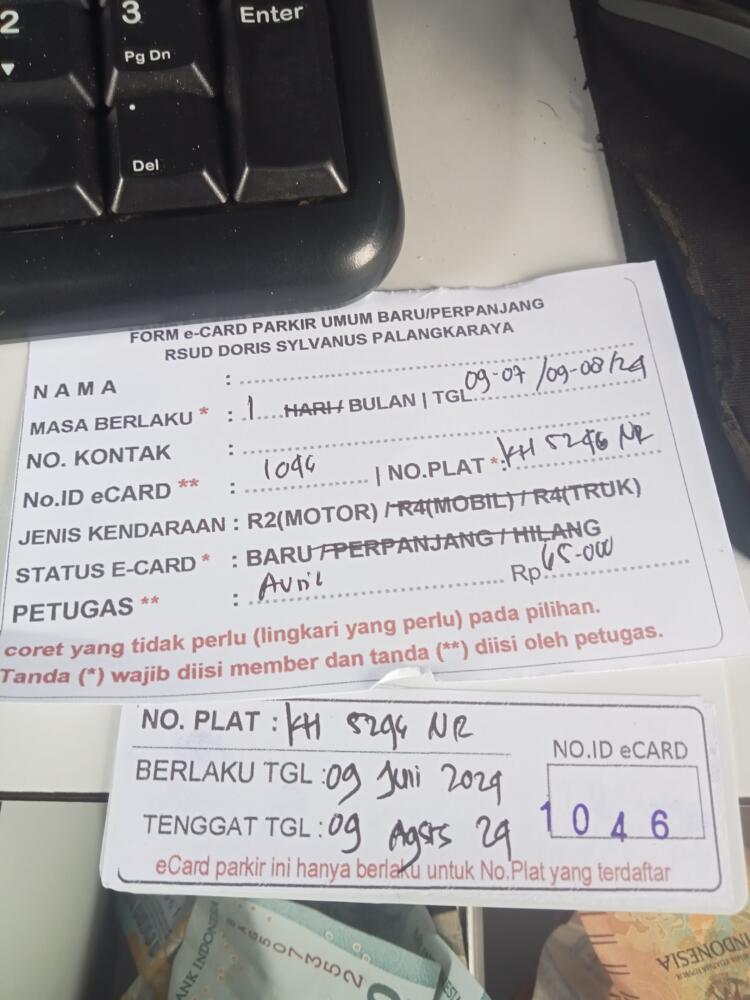 2
3
Pg Dn
Enter
Del
FORM e-CARD PARKIR UMUM BARU/PERPANJANG
RSUD DORIS SYLVANUS PALANGKARAYA
NAMA :
MASA BERLAKU * : 1 HARI / BULAN | TGL. 09-07 / 09-08/24
NO. KONTAK :
No.ID eCARD ** : 1046 | NO.PLAT *: KH 5246 NR
JENIS KENDARAAN : R2(MOTOR) / R4(MOBIL) / R4(TRUK)
STATUS E-CARD * : BARU / PERPANJANG / HILANG
PETUGAS ** : Avril Rp 65.000
coret yang tidak perlu (lingkari yang perlu) pada pilihan.
Tanda (*) wajib diisi member dan tanda (**) diisi oleh petugas.
NO. PLAT : KH 5246 NR
BERLAKU TGL : 09 Juni 2024
TENGGAT TGL : 09 Agsts 24
NO.ID eCARD
1046
eCard parkir ini hanya berlaku untuk No.Plat yang terdaftar
INDONESIA